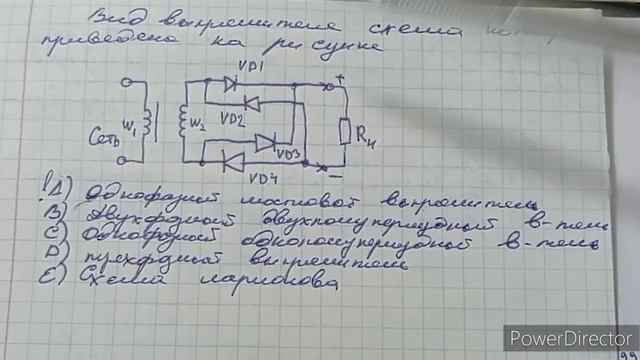 Вид выпрямителя схема кот
приведена на рисунке
VD1
+
VD2
W1
W2
Rн
Сеть
VD3
−
VD4
!A) Однофазный мостовой выпрямитель
B) Двухфазный двухполупериудный в-тель
C) Однофазный однополупериудный в-тель
D) трехфазный выпрямитель
E) Схема ларионова
PowerDirector
99